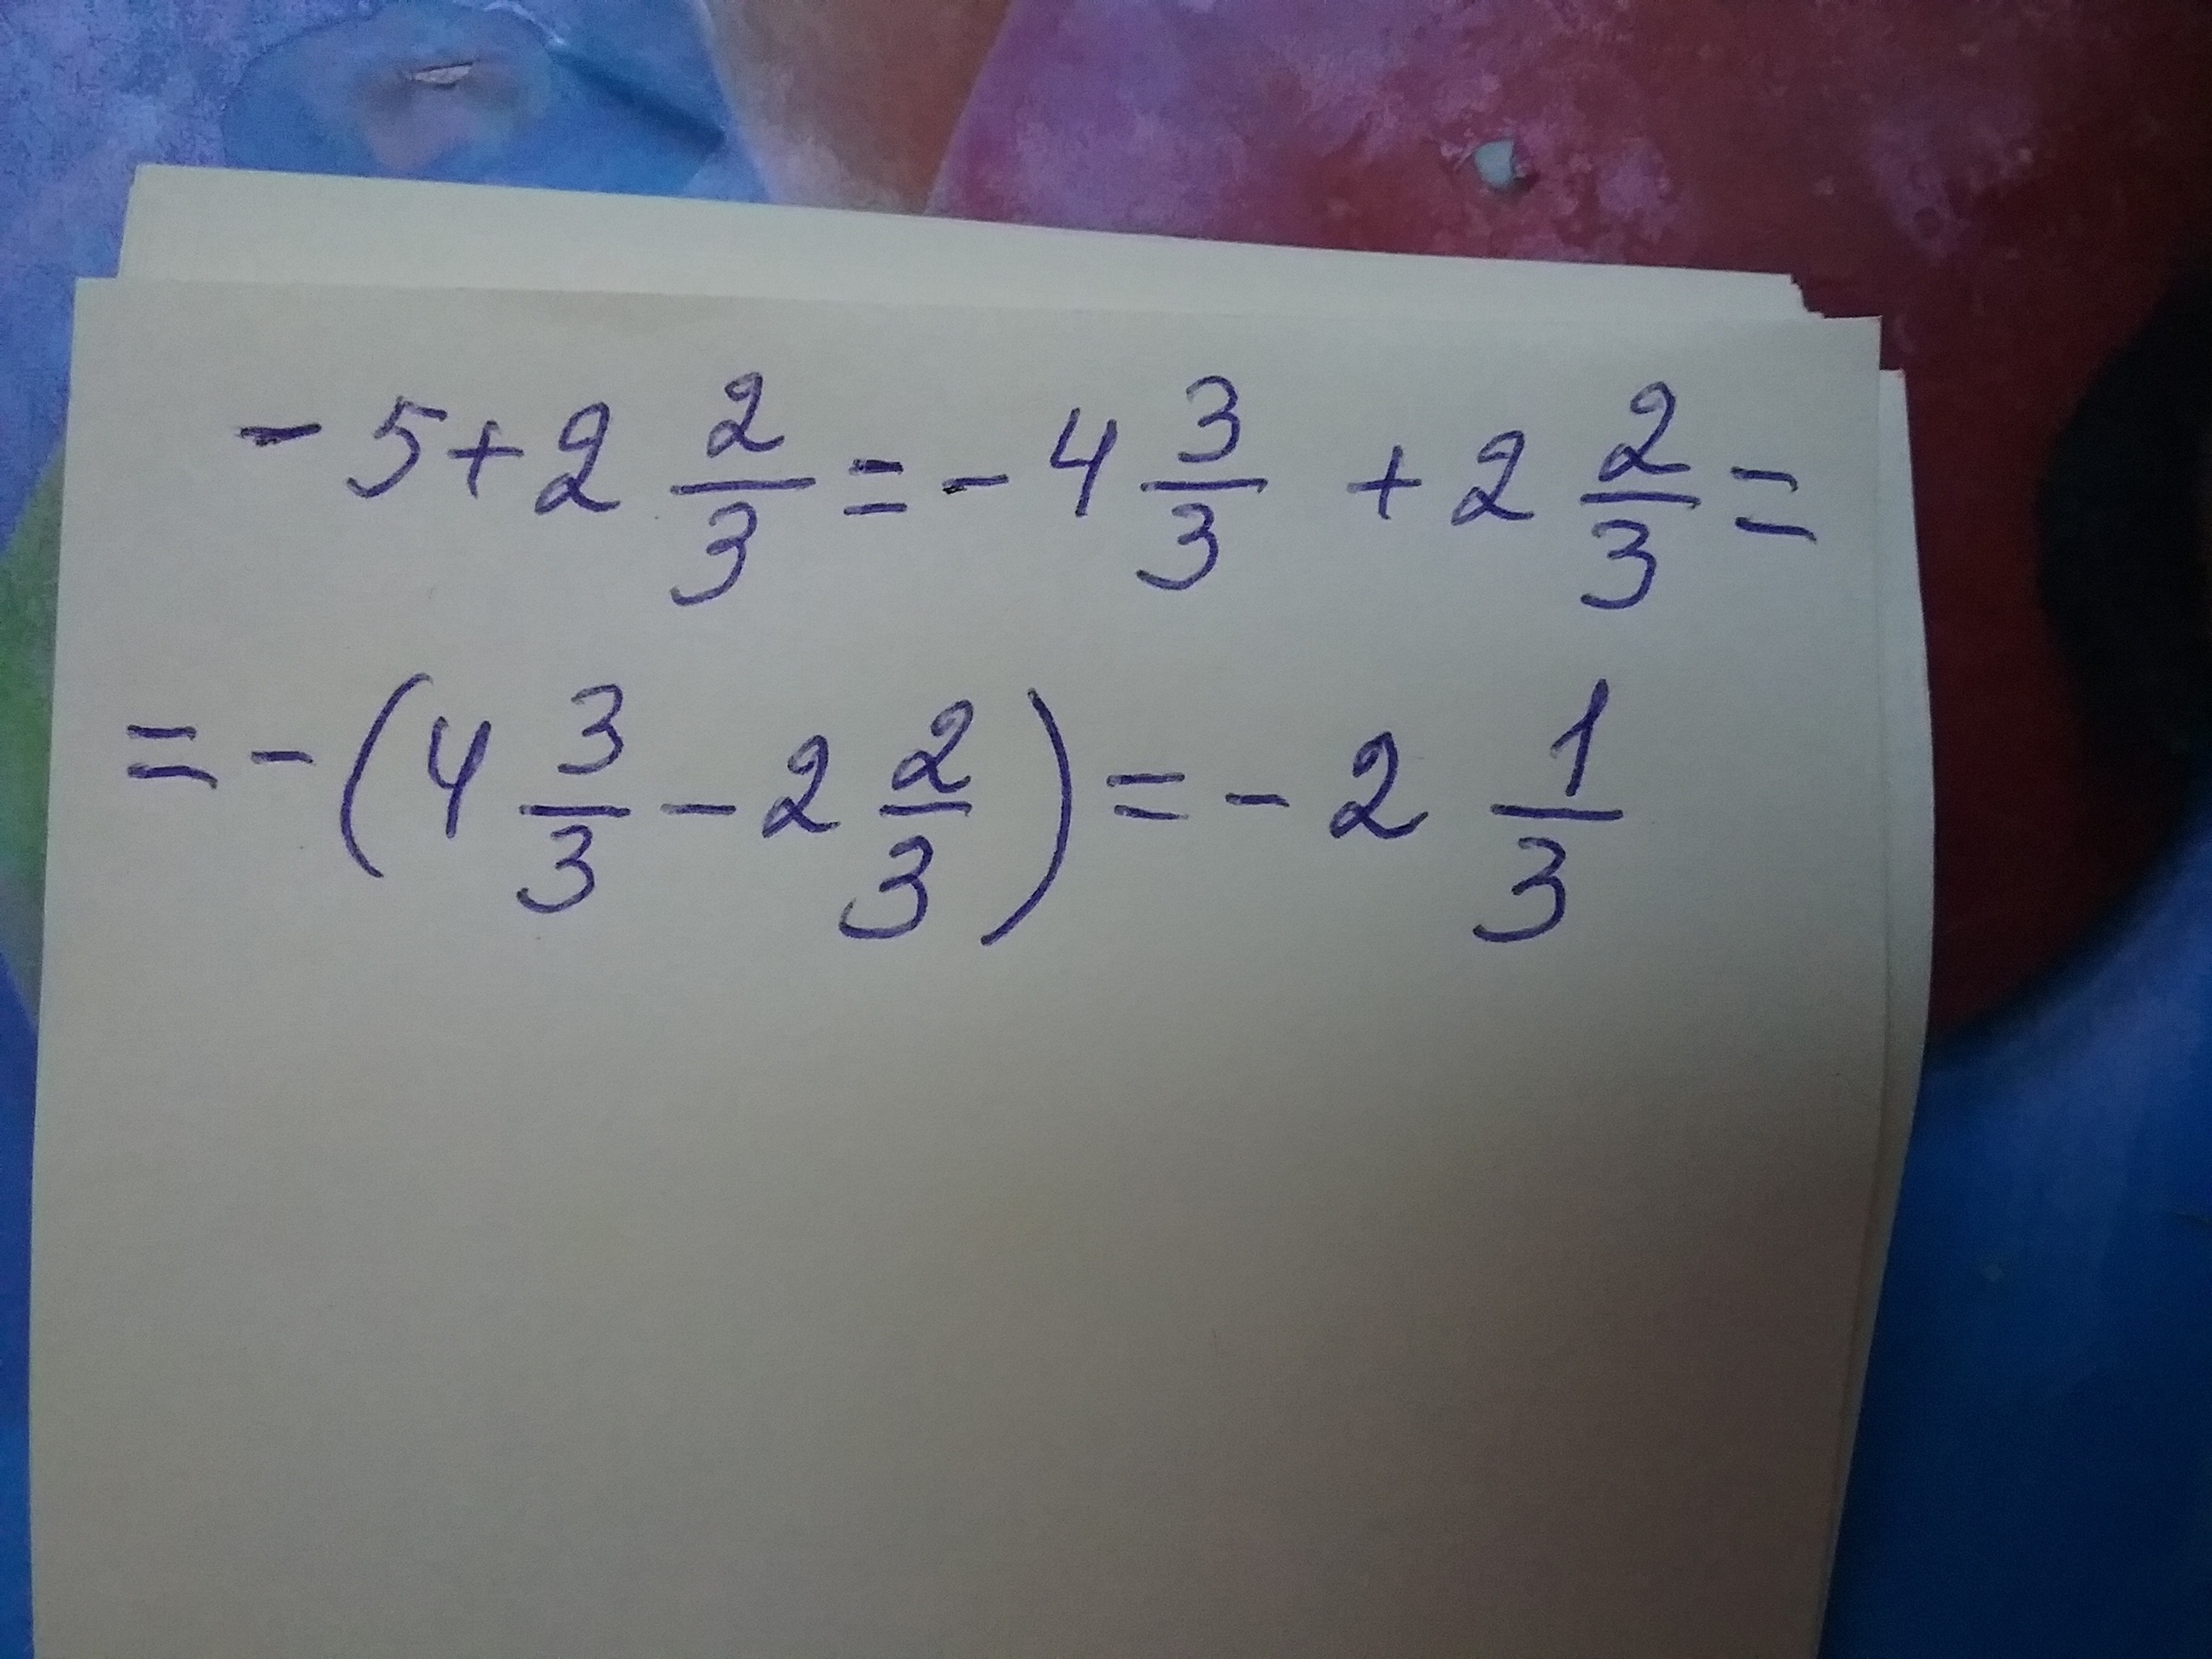 - 5 + 2 2/3 = - 4 3/3 + 2 2/3 =
= - (4 3/3 - 2 2/3) = - 2 1/3